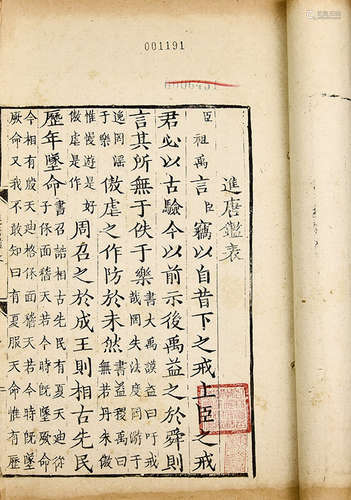 001191
進唐鑑表
臣祖禹言臣竊以自昔下之戒上臣之戒
君必以古驗今以前示後禹益之於舜則
言其所無于佚于樂書大禹謨益曰吁戒哉罔失法度罔游于
逸罔淫于樂傲虐之作防於未然書益稷禹曰無若丹朱傲
惟慢遊是好傲虐是作周召之於成王則相古先民
歷年墜命書召誥相古先民有夏天迪從子保面稽天若今時既墜厥命
今相有殷天迪格保面稽天若今時既墜
厥命又我不敢知曰有夏服天命惟有歷